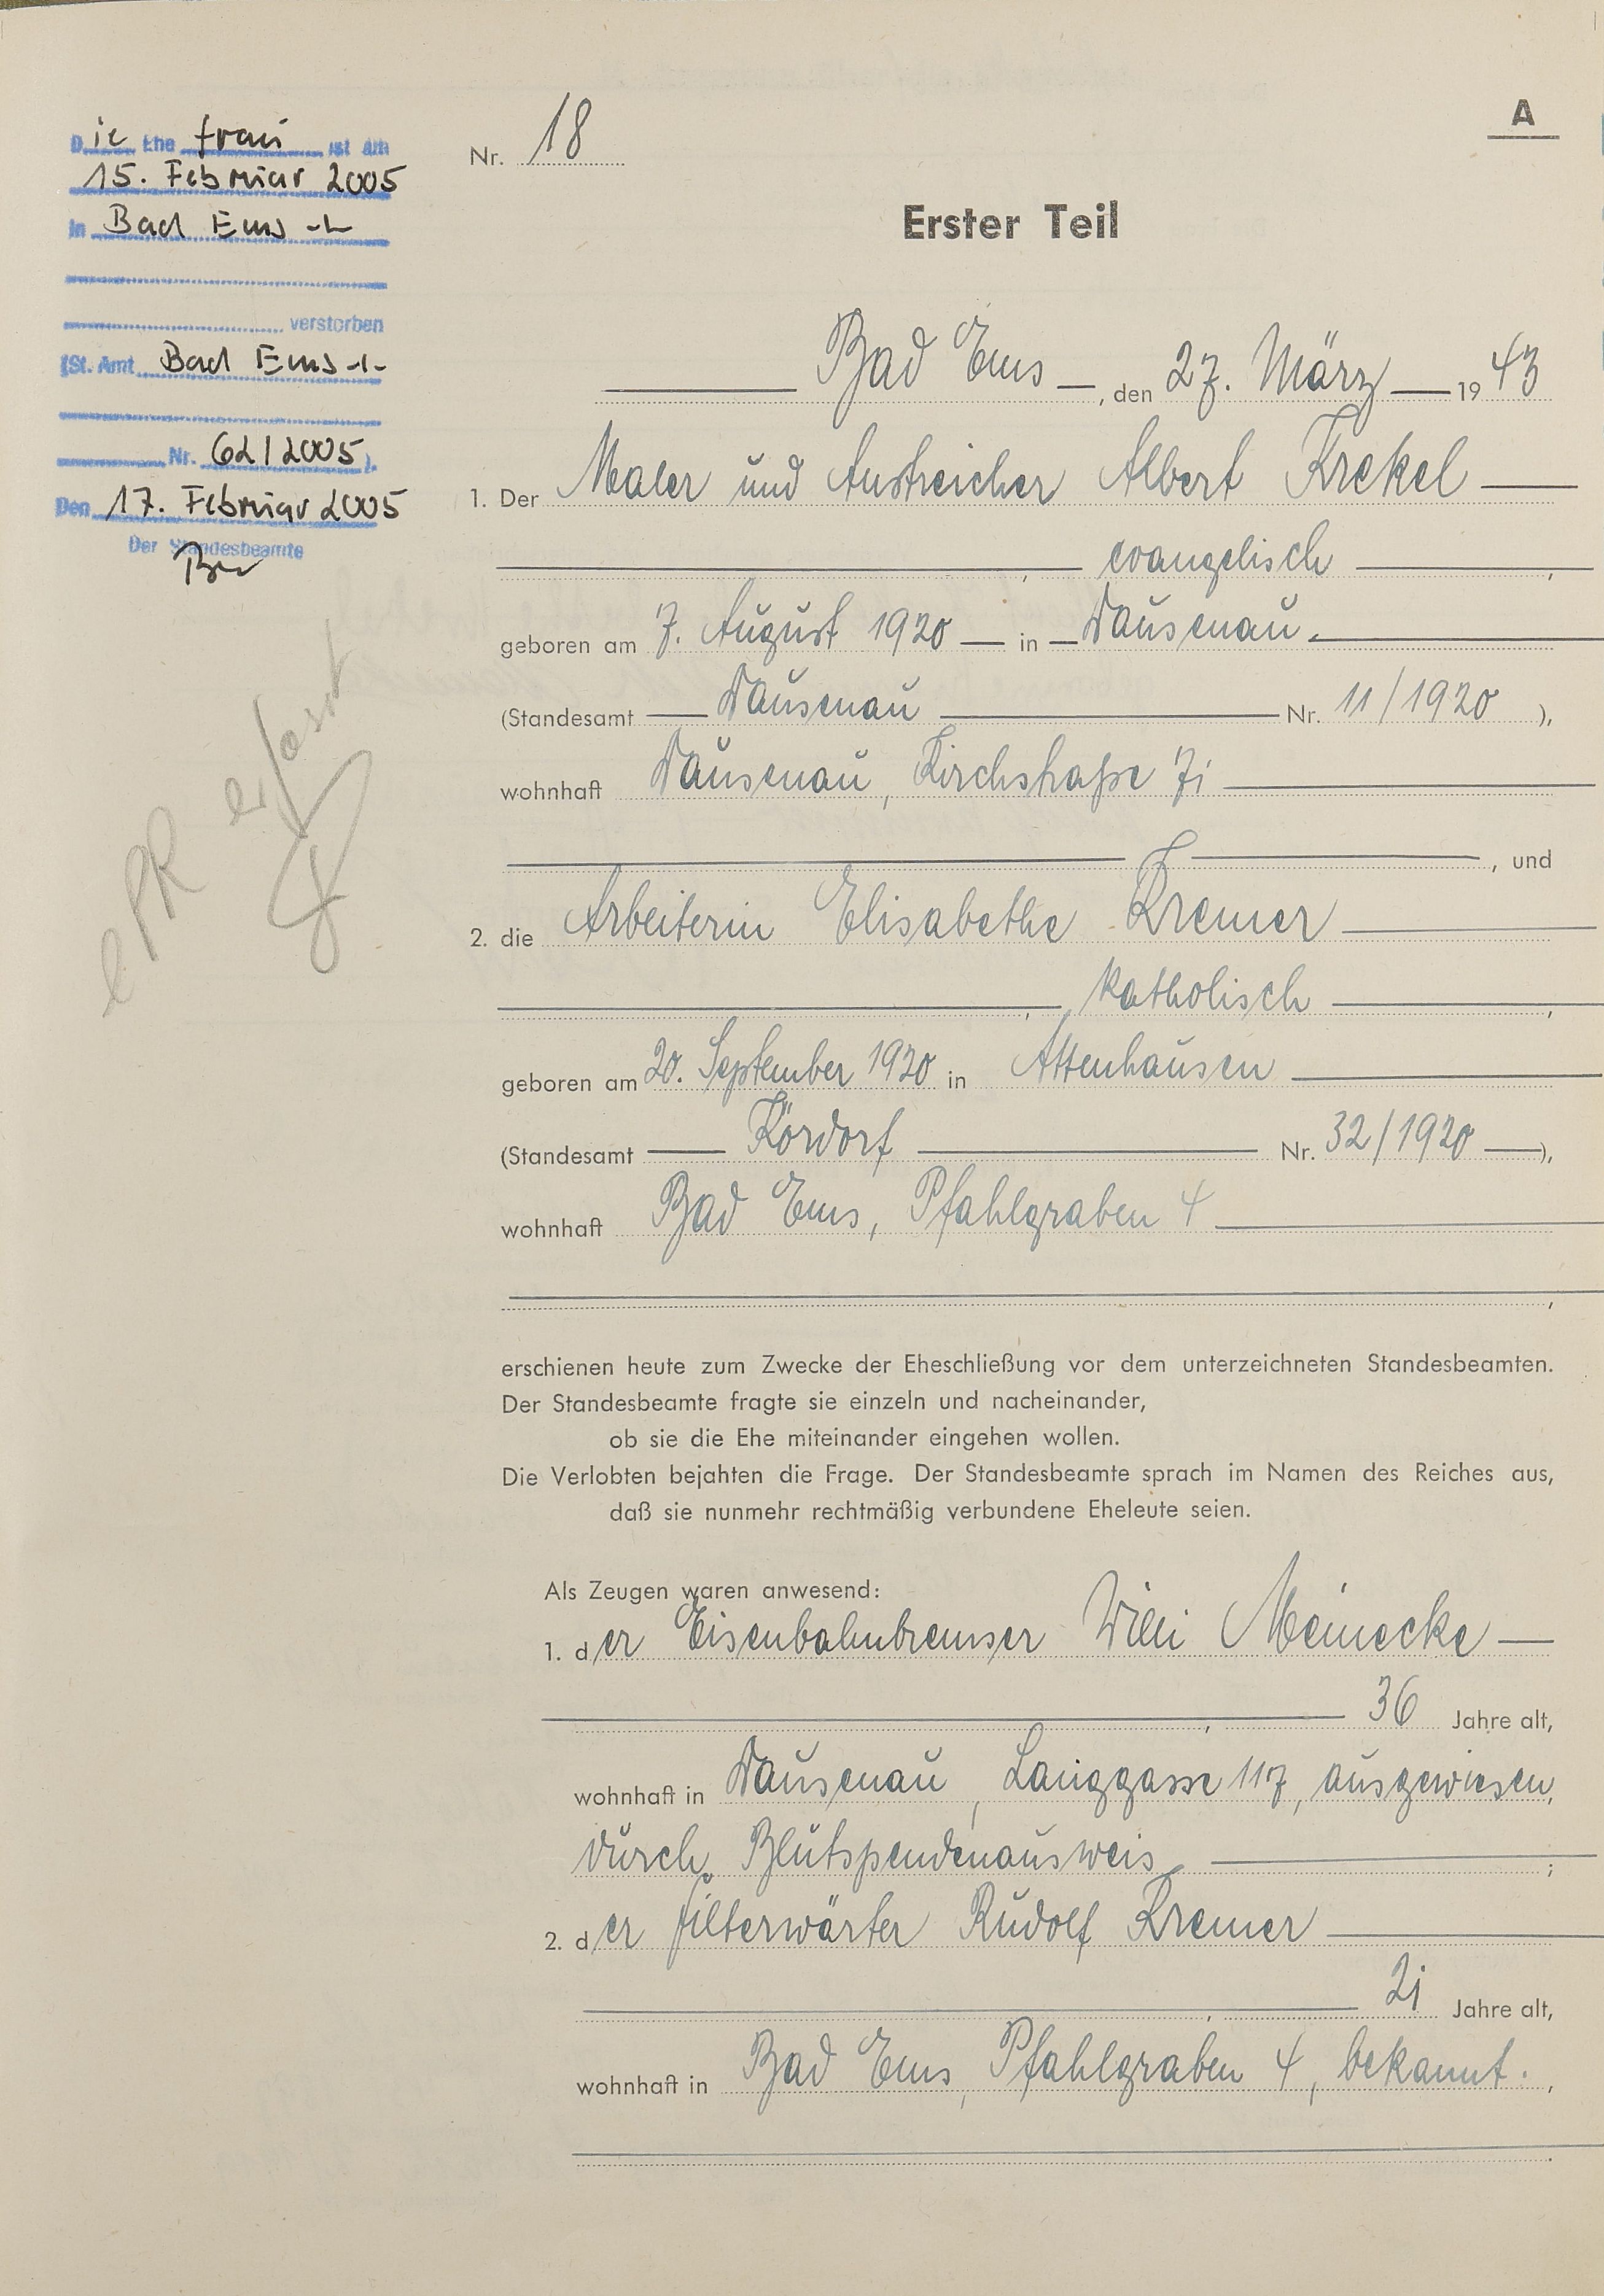 Die Ehefrau ist am
15. Februar 2005
in Bad Ems -/-
verstorben
(St. Amt Bad Ems -/-
Nr. 62/2005).
Den 17. Februar 2005
Der Standesbeamte
ePR erfasst
A
Nr. 18
Erster Teil
Bad Ems —, den 27. März — 19 43
1. Der Maler und Anstreicher Albert Krekel —
, — evangelisch — ,
geboren am 7. August 1920 — in — Dausenau. —
(Standesamt — Dausenau — Nr. 11/1920 ),
wohnhaft Dausenau, Kirchstraße 71 —
— , und
2. die Arbeiterin Elisabethe Kremer —
, — katholisch — ,
geboren am 20. September 1920 in Attenhausen —
(Standesamt — Kördorf — Nr. 32/1920 —),
wohnhaft Bad Ems, Pfahlgraben 4 —
— ,
erschienen heute zum Zwecke der Eheschließung vor dem unterzeichneten Standesbeamten.
Der Standesbeamte fragte sie einzeln und nacheinander,
ob sie die Ehe miteinander eingehen wollen.
Die Verlobten bejahten die Frage. Der Standesbeamte sprach im Namen des Reiches aus,
daß sie nunmehr rechtmäßig verbundene Eheleute seien.
Als Zeugen waren anwesend:
1. der Eisenbahnbremser Willi Meinecke —
— , — 36 Jahre alt,
wohnhaft in Dausenau, Langgasse 117, ausgewiesen,
durch Blutspendenausweis — ;
2. der Filterwärter Rudolf Kremer —
— , — 21 Jahre alt,
wohnhaft in Bad Ems, Pfahlgraben 4, bekannt. ,
— .